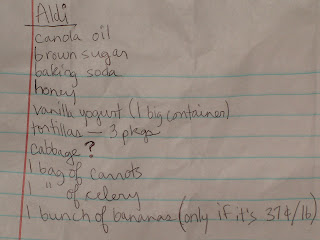 Aldi
canola oil
brown sugar
baking soda
honey
vanilla yogurt (1 big container)
tortillas — 3 pkgs
cabbage?
1 bag of carrots
1 " of celery
1 bunch of bananas (only if it's 37¢/lb)